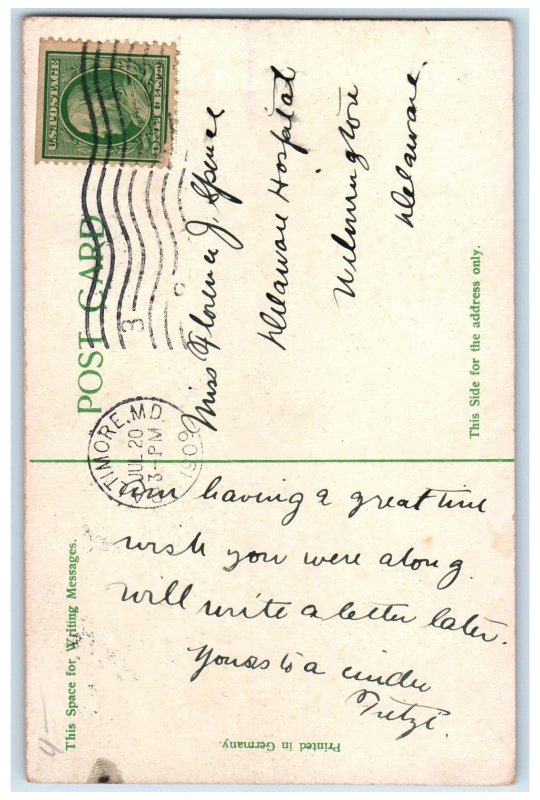 U.S. POSTAGE
ONE CENT
POST CARD
3
BALTIMORE, MD.
JUL 20
3-PM
1909
Miss Florence J. Spence
Delaware Hospital
Wilmington
Delaware.
This Side for the address only.
This Space for Writing Messages.
am having a great time
wish you were along.
will write a letter later.
Yours to a cinder
Fritzi.
Printed in Germany.
4—